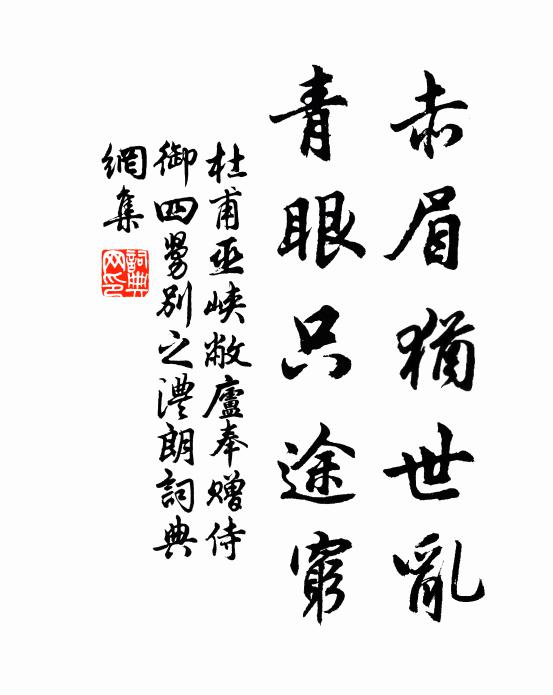 赤眉猶世亂
青眼只途窮
杜甫巫峽敝廬奉贈侍
御四舅別之澧朗詞典
網集
詞典网印